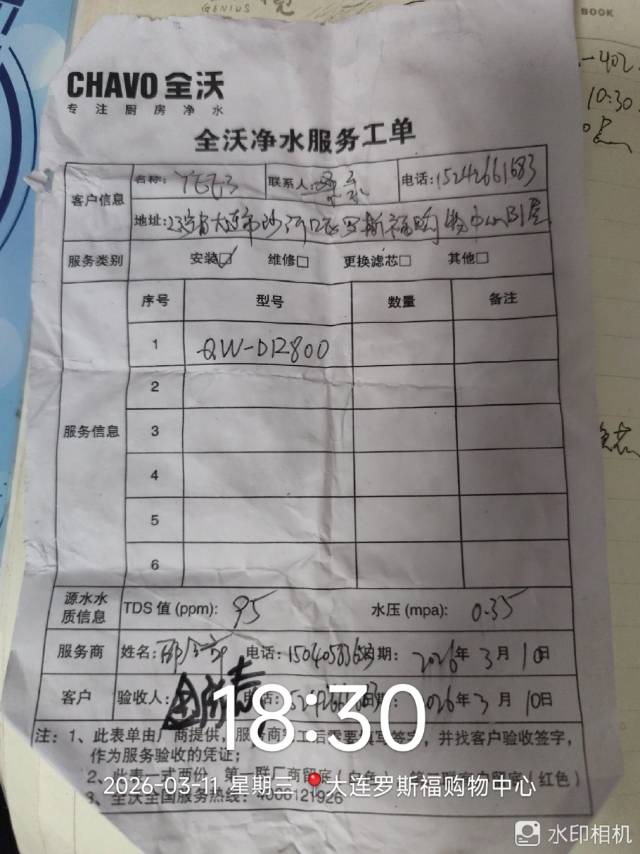 GENIUS
BOOK
-402
10:30
CHAVO 全沃
专注厨房净水
全沃净水服务工单
客户信息 名称: 联系人: 电话: 15242661683
地址: 辽宁省大连市沙河口区罗斯福购物中心B1层
服务类别 安装☑ 维修□ 更换滤芯□ 其他□
服务信息 序号 型号 数量 备注
1 QW-DR800
2
3
4
5
6
源水水质信息 TDS 值 (ppm): 95 水压 (mpa): 0.35
服务商 姓名: 电话: 日期: 2026年 3月 10日
客户 验收人: 2026年 3月 10日
18:30
注: 1、此表单由厂商提供, 并找客户验收签字,
作为服务验收的凭证;
2、此表一式两份 (红色)
3、全沃全国服务热线: 4006121926
2026-03-11 星期三 📍大连罗斯福购物中心
水印相机